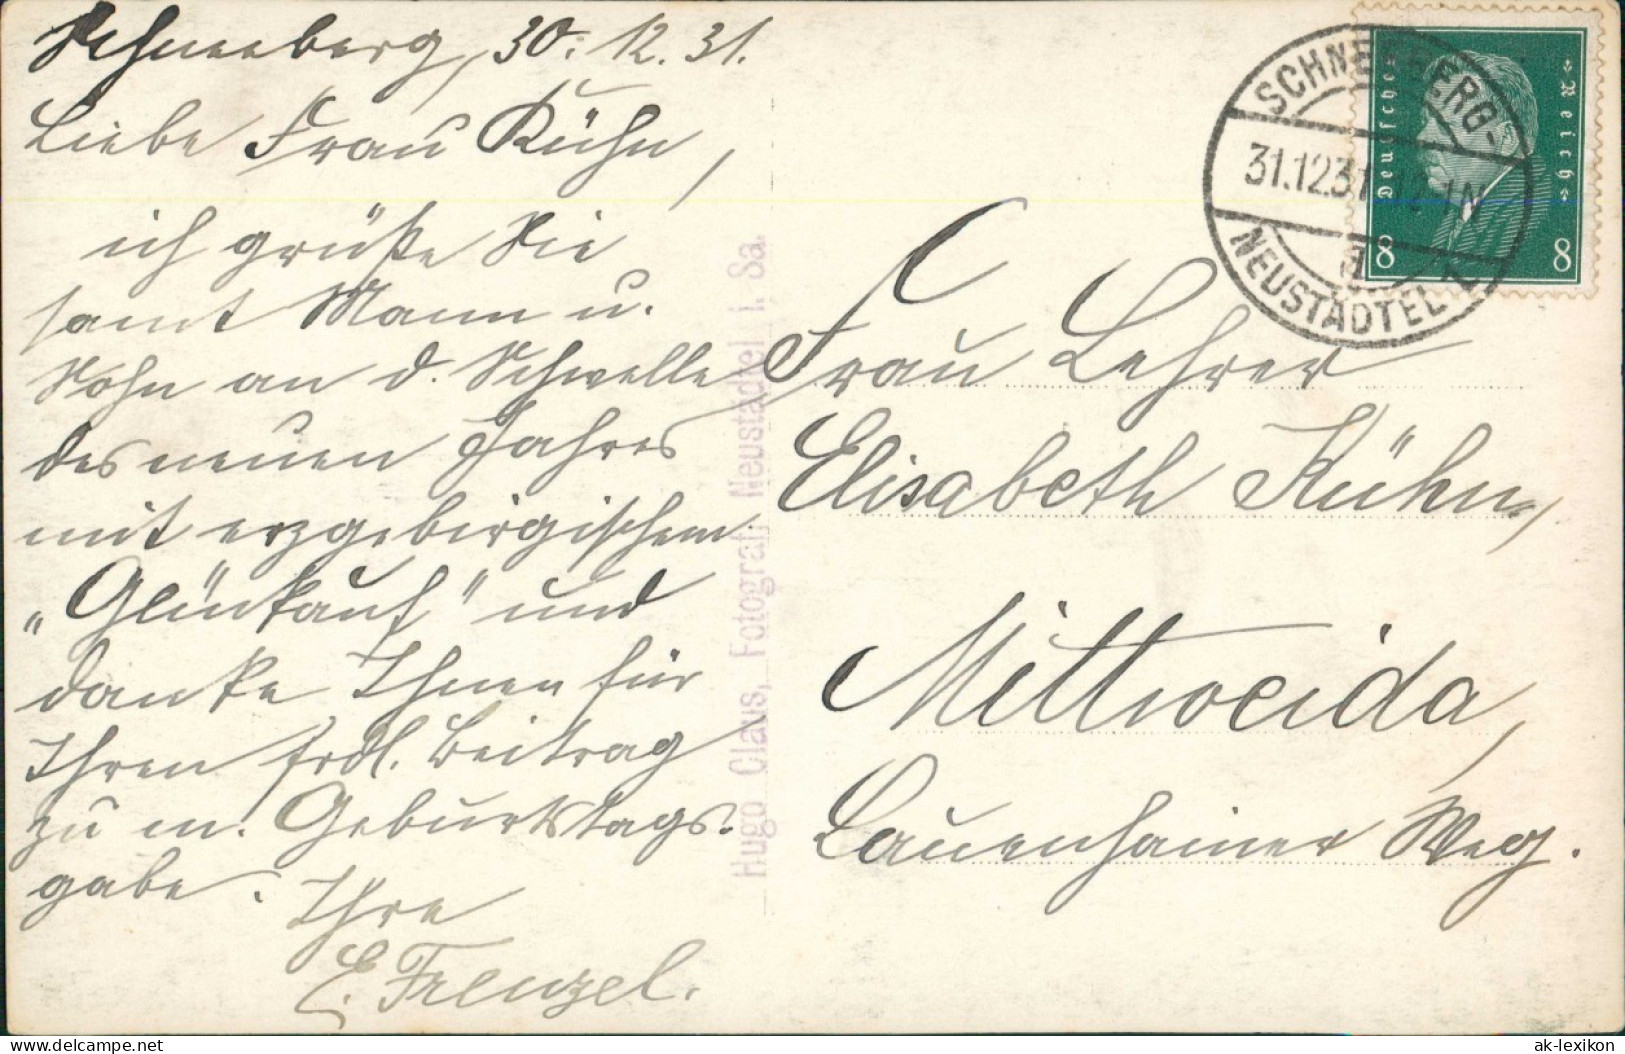 Schneeberg, 30. 12. 31.
Liebe Frau Kühn,
ich grüße Sie
samt Mann u.
Sohn an d. Schwelle
des neuen Jahres
mit erzgebirgischem
„Glückauf" und
danke Ihnen für
Ihren frdl. Beitrag
zu m. Geburtstags-
gabe. Ihre
E. Frenzel.
Hugo Claus, Fotograf, Neustädtel i. Sa.
SCHNEEBERG-
31.12.31
NEUSTÄDTEL
Deutsches
Reich
8 8
Frau Lehrer
Elisabeth Kühn,
Mittweida,
Lauenhainer Weg.
delcampe.net
ak-lexikon